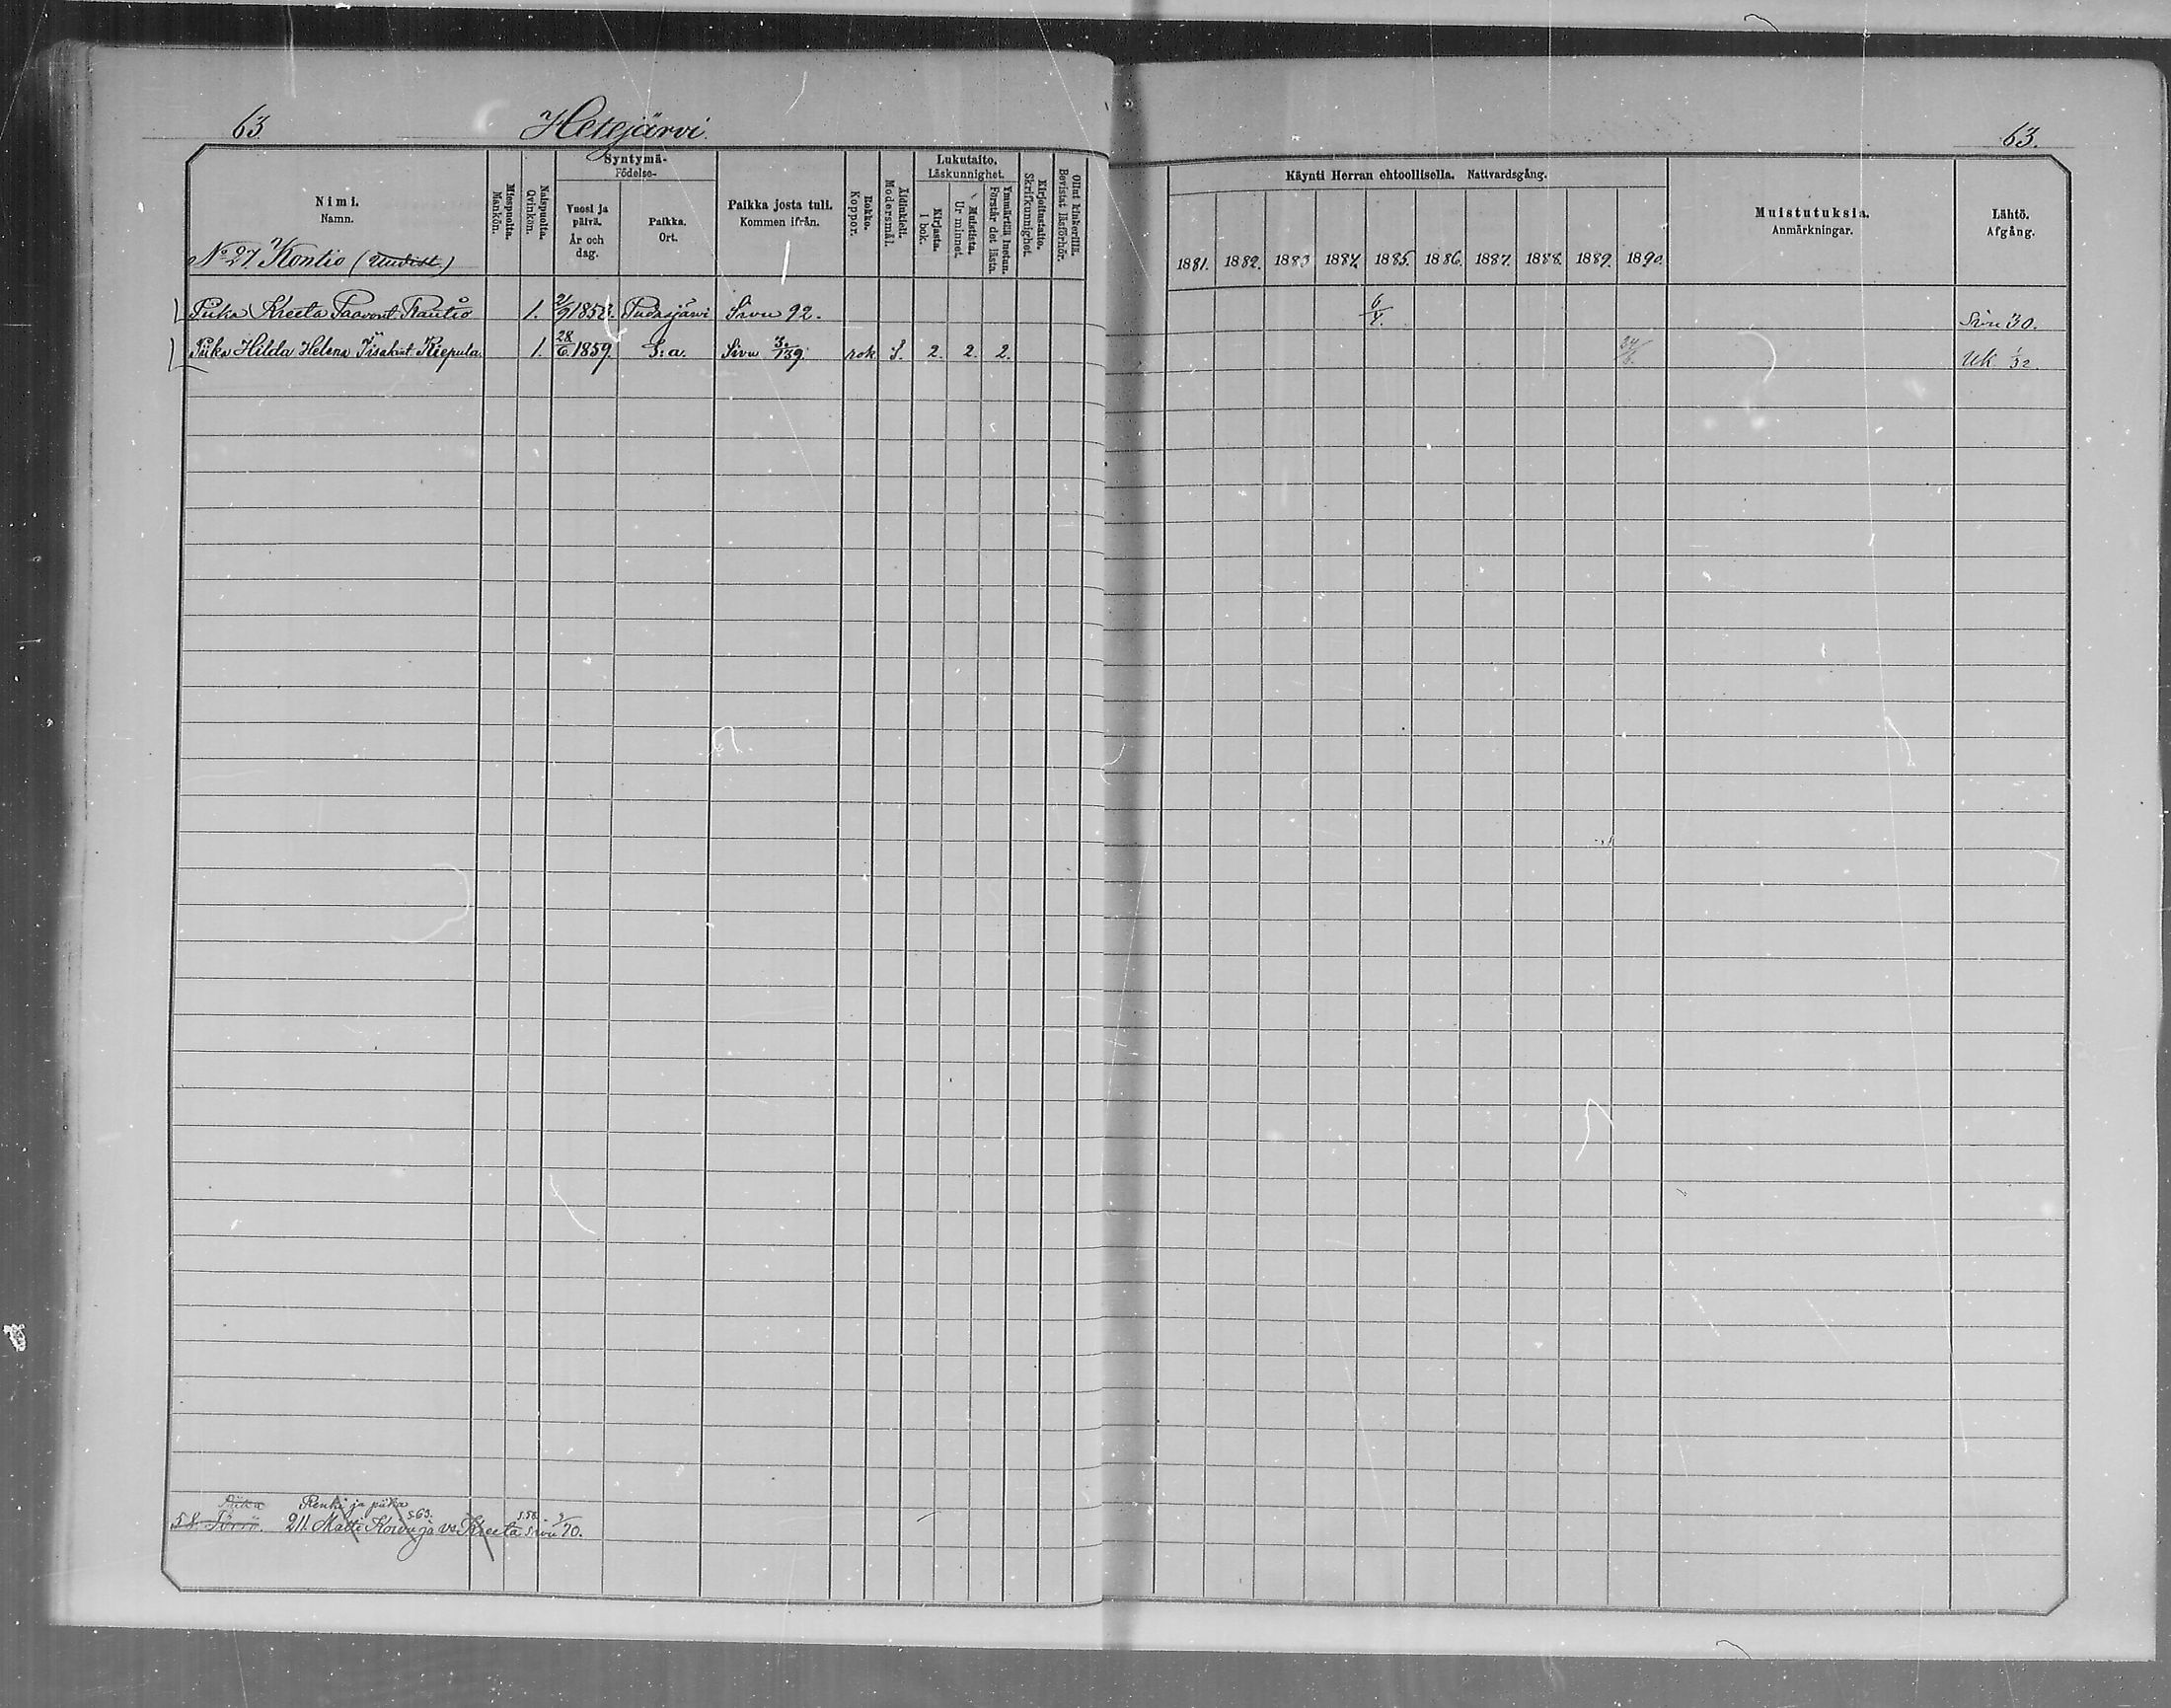 63 Hetejärvi. 63.
Nimi. Namn.
Miespuolia. Mankön.
Naispuolia. Qvinkön.
Syntymä- Födelse-
Vuosi ja päivä. År och dag.
Paikka. Ort.
Paikka josta tuli. Kommen ifrån.
Rokko. Koppor.
Äidinkieli. Modersmål.
Lukutaito. Läskunnighet.
Kirjasta. I bok.
Muistista. Ur minnet.
Ymmärtää luetun. Förstår det lästa.
Kirjoitustaito. Skrifkunnighet.
Ollut kinkerillä. Bevistat läsförhör.
Käynti Herran ehtoollisella. Nattvardsgång.
1881. 1882. 1883 1884. 1885. 1886. 1887. 1888. 1889. 1890.
Muistutuksia. Anmärkningar.
Lähtö. Afgång.
No 27. Kontio (Uudist.)
Piika Kreeta Paavont. Rautio 1. Pudasjärvi Sivu 92. 6/4. Sivu 30.
Piika Hilda Helena Iisakint. Riepula. 1. 28/6 1859. S:a. Sivu 139. rok S. 2. 2. 2. Uk
Piika Renki ja piika
58. 211. Matti ja Kreeta Sivu 70.